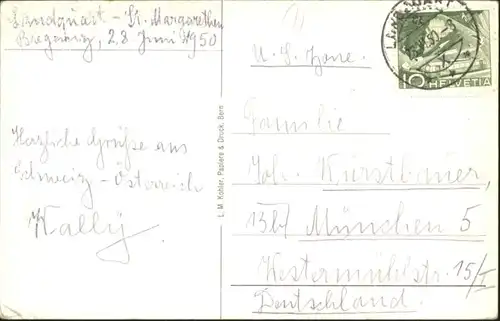 Landquart - St. Margarethen
Bregenz, 28 Juni 1950
Herzliche Grüsse aus
Schweiz - Österreich
Kally.
L. M. Kohler, Papiere & Druck, Bern
U. S. Zone.
LANDQUART
10 HELVETIA
Familie
Joh. Kürstbauer,
13b/ München 5
Westermühlstr. 15/I
Deutschland.